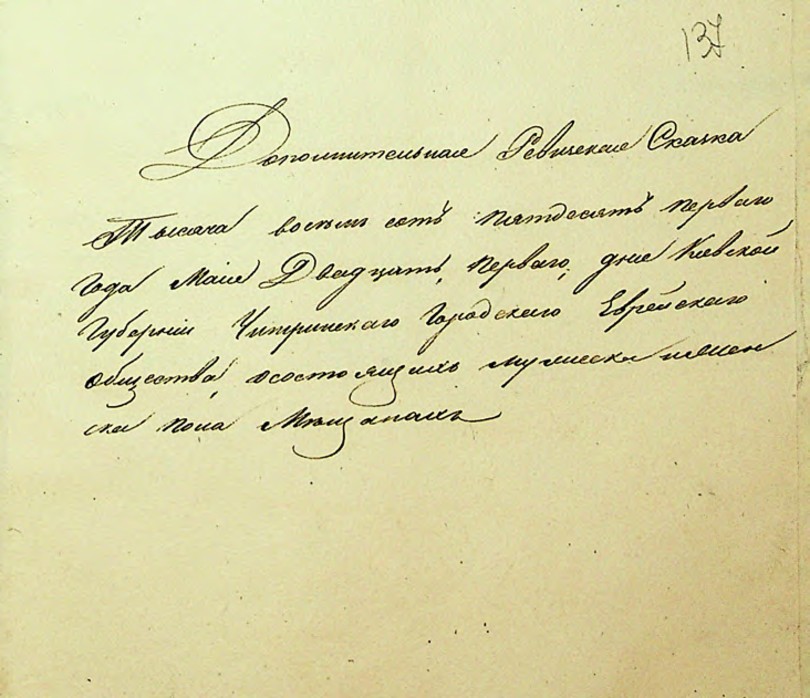 137
Дополнительная Ревизская Сказка
Тысяча восемь сотъ пятдесятъ перваго
Года Мая Двадцать перваго дня Киевской
Губерніи Чигринскаго Городскаго Еврейскаго
общества, о состоящихъ мужеска и женска
пола Мѣщанахъ